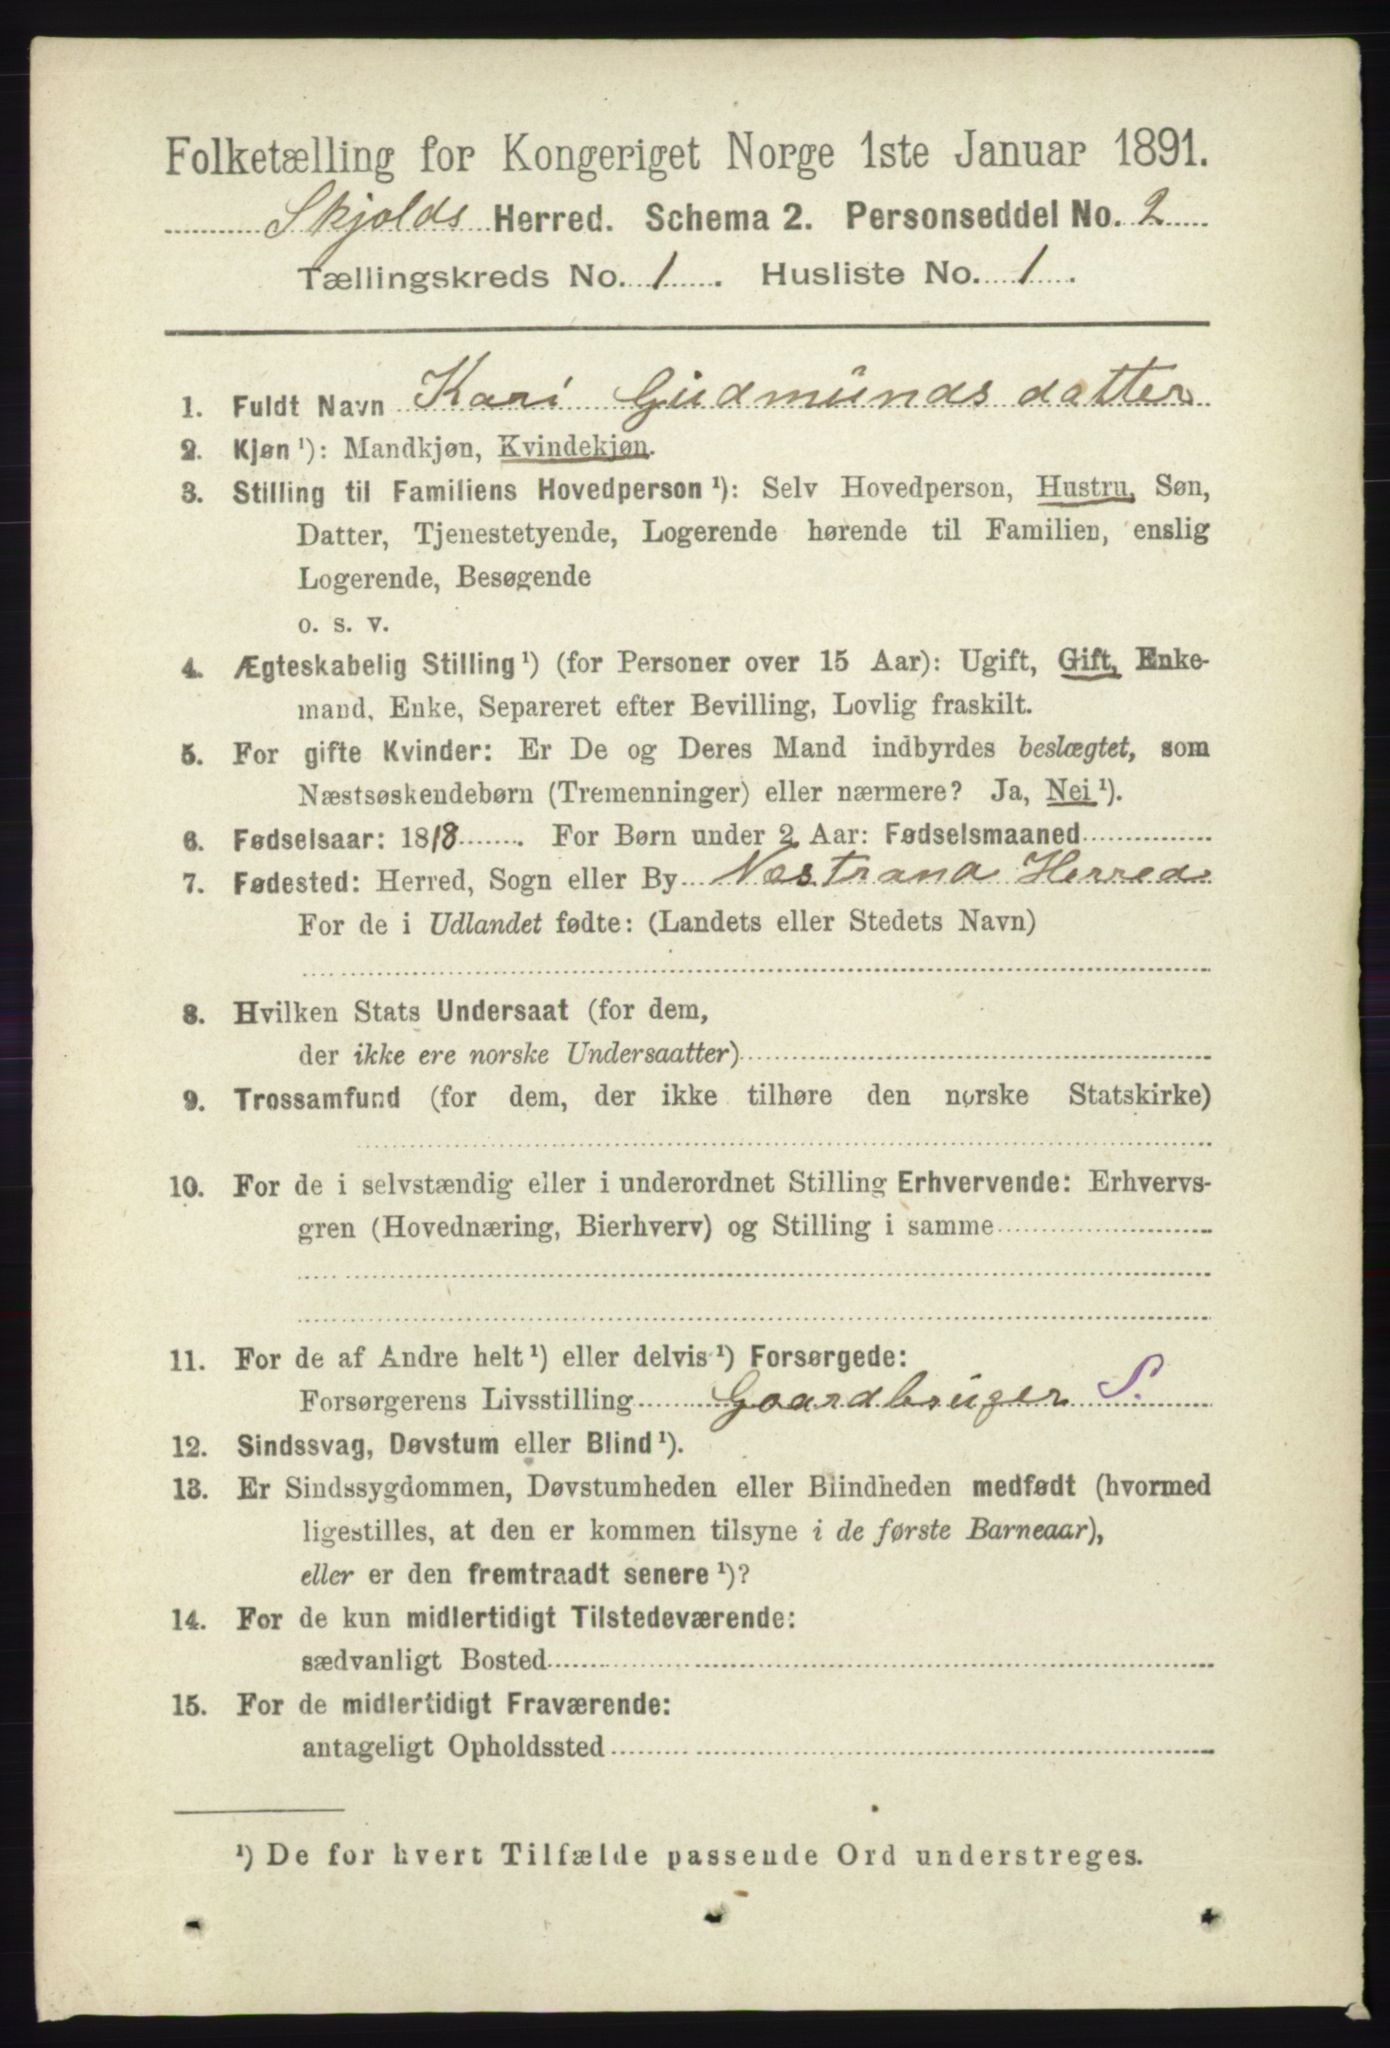 Folketælling for Kongeriget Norge 1ste Januar 1891.
Skjolds Herred. Schema 2. Personseddel No. 2
Tællingskreds No. 1. Husliste No. 1.
1. Fuldt Navn Kari Gudmunds datter
2. Kjøn ¹): Mandkjøn, Kvindekjøn.
3. Stilling til Familiens Hovedperson ¹): Selv Hovedperson, Hustru, Søn,
Datter, Tjenestetyende, Logerende hørende til Familien, enslig
Logerende, Besøgende
o. s. v.
4. Ægteskabelig Stilling ¹) (for Personer over 15 Aar): Ugift, Gift, Enke-
mand, Enke, Separeret efter Bevilling, Lovlig fraskilt.
5. For gifte Kvinder: Er De og Deres Mand indbyrdes beslægtet, som
Næstsøskendebørn (Tremenninger) eller nærmere? Ja, Nei ¹).
6. Fødselsaar: 1818. For Børn under 2 Aar: Fødselsmaaned
7. Fødested: Herred, Sogn eller By Næstrand Herred
For de i Udlandet fødte: (Landets eller Stedets Navn)
8. Hvilken Stats Undersaat (for dem,
der ikke ere norske Undersaatter)
9. Trossamfund (for dem, der ikke tilhøre den norske Statskirke)
10. For de i selvstændig eller i underordnet Stilling Erhvervende: Erhvervs-
gren (Hovednæring, Bierhverv) og Stilling i samme
11. For de af Andre helt ¹) eller delvis ¹) Forsørgede:
Forsørgerens Livsstilling Gaardbruger S.
12. Sindssvag, Døvstum eller Blind ¹).
13. Er Sindssygdommen, Døvstumheden eller Blindheden medfødt (hvormed
ligestilles, at den er kommen tilsyne i de første Barneaar),
eller er den fremtraadt senere ¹)?
14. For de kun midlertidigt Tilstedeværende:
sædvanligt Bosted
15. For de midlertidigt Fraværende:
antageligt Opholdssted
¹) De for hvert Tilfælde passende Ord understreges.